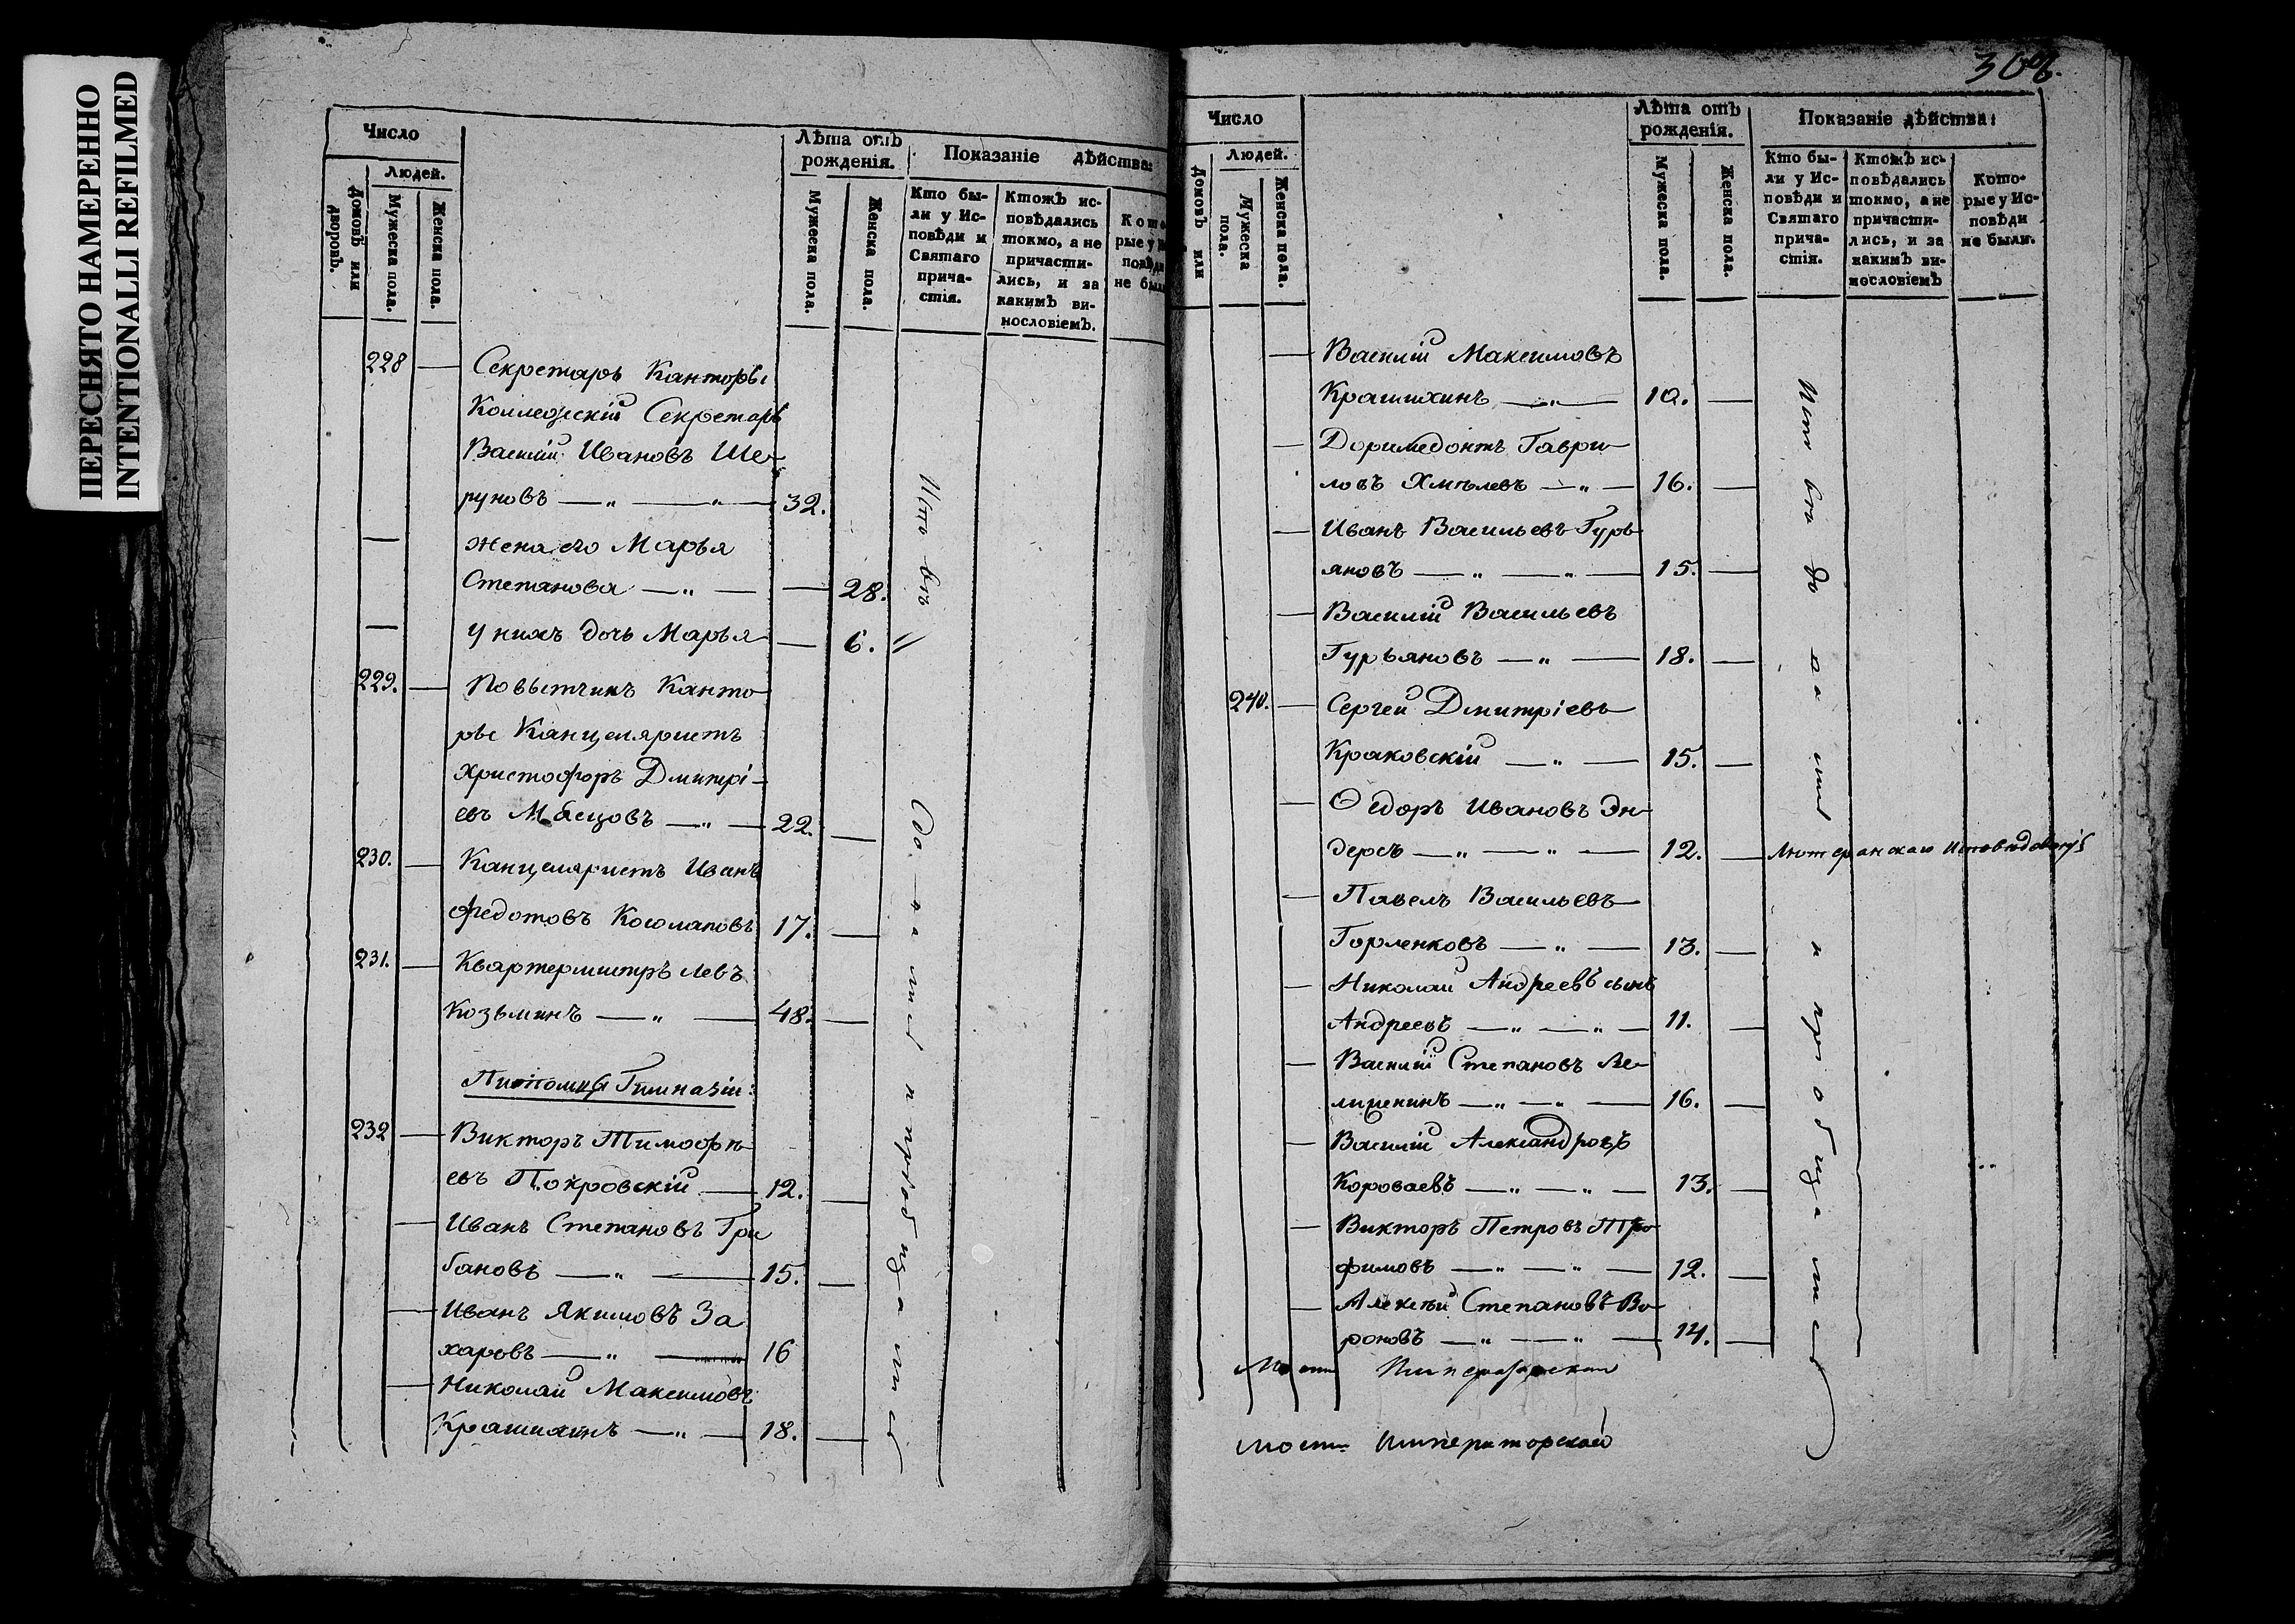 ПЕРЕСНЯТО НАМЕРЕННО
INTENTIONALLI REFILMED
Число
Людей.
Домовъ или дворовъ.
Мужеска пола.
Женска пола.
Лѣта отъ рожденія.
Мужеска пола.
Женска пола.
Показаніе дѣйства:
Кто бы-
ли у Ис-
повѣди и
Святаго
прича-
стія.
Ктожъ ис-
повѣдались
токмо, а не
причасти-
лись, и за
какимъ ви-
нословіемъ.
Кото
рые у И
повѣди
не были
228 — Секретарь Канторы
Коллежскій Секретарь
Василій Ивановъ Ше-
руновъ — „ — „ — 32.
— жена его Марья
Степанова — „ — — 28.
— у нихъ дочь Марья — 6.
229. — Повытчикъ Канто
ры Канцеляристъ
Христофоръ Дмитрі-
евъ — „ — 22. —
230. — Канцеляристъ Иванъ
Федотовъ Косолаповъ 17. —
231. — Квартермистръ Левъ
Козьминъ — „ — 48. —
Питомцы Гимназіи:
232 — Викторъ Тимофѣ-
евъ Покровскій — 12. —
— Иванъ Степановъ Гри
бановъ — „ — 15. —
— Иванъ Якимовъ За
харовъ — „ — 16
— Николай Максимовъ
Крашихинъ — „ — 18. —
и пріобщались
Число
Людей.
Домовъ или
Мужеска пола.
Женска пола.
Лѣта отъ
рожденія.
Мужеска пола.
Женска пола.
Показаніе дѣйства:
Кто бы-
ли у Ис-
повѣди и
Святаго
прича-
стія.
Ктожъ ис-
повѣдались
токмо, а не
причасти-
лись, и за
какимъ ви-
нословіемъ
Кото-
рые у Ис-
повѣди
не были.
— Василій Максимовъ
Крашихинъ — „ — 10. —
— Доримедонтъ Гаври-
ловъ Хмѣлевъ — „ — 16. —
— Иванъ Васильевъ Гурь-
яновъ — „ — „ — 15. —
— Василій Васильевъ
Гурьяновъ — „ — 18. —
240. — Сергей Дмитріевъ
Краковскій — „ — 15. —
— Ѳедоръ Ивановъ Эн-
дерсъ — „ — „ — 12. — Лютеранскаго
— Павелъ Васильевъ
Горленковъ — „ — 13. —
— Николай Андреевъ сынъ
Андреевъ — „ — „ — 11. —
— Василій Степановъ Ле-
— „ — „ — 16. —
— Василій Александровъ
Короваевъ — „ — „ — 13. —
— Викторъ Петровъ Тро-
фимовъ — „ — „ — 12. —
— Алексѣй Степановъ Во-
роновъ — „ — „ — 14. —
и пріобщались
Императорской